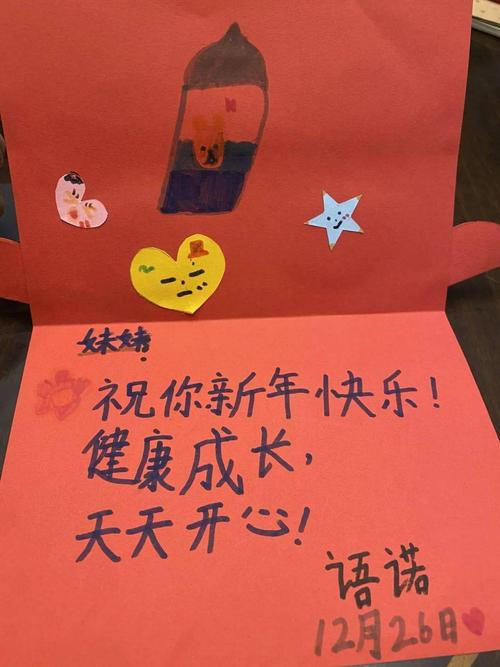 妹妹:
祝你新年快乐！
健康成长，
天天开心！
语诺
12月26日